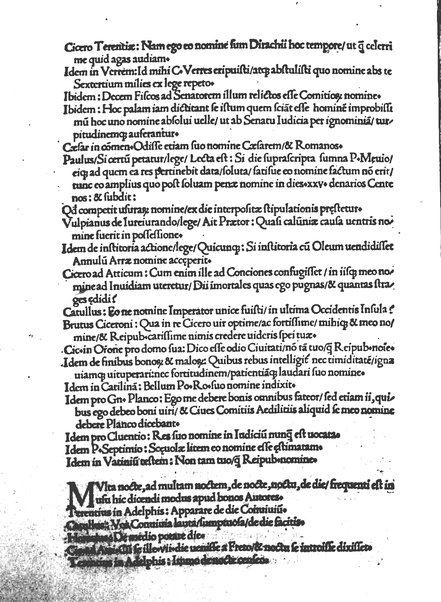 Cicero Terentiæ: Nam ego eo nomine sum Dirachii hoc tempore/ ut q̃ celerri
me quid agas audiam•
Idem in Verrem: Id mihi C• Verres eripuisti/ atq; abstulisti quo nomine abs te
Sextertium milies ex lege repeto•
Ibidem: Decem Fiscos ad Senatorem illum relictos esse Comitioꝝ nomine•
Ibidem: Hoc palam iam dictitant se istum quem sciãt esse hominẽ improbissi
mũ hoc uno nomine absolui uelle/ ut ab Senatu Iudicia per ignominiã/ tur
pitudinemq; auferantur•
Cæsar in cõmen• Odisse etiam suo nomine Cæsarem/ & Romanos•
Paulus/ Si certũ petatur/ lege/ Lecta est: Si die suprascripta summa P• Meuio/
eiq; ad quem ea res pertinebit data/ soluta/ satisue eo nomine factum nõ erit/
tunc eo amplius quo post soluam pœnæ nomine in dies •xxv• denarios Cente
nos: & subdit:
Qd competit usuraꝝ nomine/ ex die interpositæ stipulationis præstetur•
Vulpianus de Iureiurando/ lege/ Ait Prætor: Quasi calũniæ causa uentris no
mine fuerit in possessione•
Idem de institoria actione/ lege/ Quicunq;: Si institoria cũ Oleum uendidisset
Annulũ Arræ nomine acceperit•
Cicero ad Atticum: Cum enim ille ad Conciones confugisset/ in iisq; meo no
mine ad Inuidiam uteretur/ Dii immortales quas ego pugnas/ & quantas stra
ges edidi?
Catullus: Eo ne nomine Imperator unice fuisti/ in ultima Occidentis Insula?
Brutus Ciceroni: Qua in re Cicero uir optime/ ac fortissime/ mihiq; & meo no/
mine/ & Reipub• carissime nimis credere uideris spei tuæ•
Cic• in Orõne pro domo sua: Dico esse odio Ciuitati/ nõ tã tuo/ q̃ Reipub• noĩe•
Idem de finibus bonoꝝ & maloꝝ: Quibus rebus intelligit nec timiditatẽ/ igna
uiamq; uituperari: nec fortitudinem/ patientiãq; laudari suo nomine•
Idem in Catilinã: Bellum Po• Ro• suo nomine indixit•
Idem pro Gn• Planco: Ego me debere bonis omnibus fateor/ sed etiam ii, qui/
bus ego debeo boni uiri/ & Ciues Comitiis Aedilitiis aliquid se meo nomine
debere Planco dicebant•
Idem pro Cluentio: Res suo nomine in Iudiciũ nunq̃ est uocata•
Idem P• Septimio: Scæuolæ litem eo nomine esse æstimatam•
Idem in Vatiniũ testem: Non tam tuo/ q̃ Reipub• nomine•
MVlta nocte, ad multam noctem, de nocte, noctu, de die/ frequenti est in
usu hic dicendi modus apud bonos Autores•
Terentius in Adelphis: Apparare de die Conuiuiũ•
Catullus: Vos Conuiuia lauta/ sumptuosa/ de die facitis•
Horatius: De medio potare die•
Cic• ad Atti• Et si ille •vii• die uenisse a Freto/ & noctu se introisse dixisset•
Terentius in Adelphis: Immo de nocte censeo•